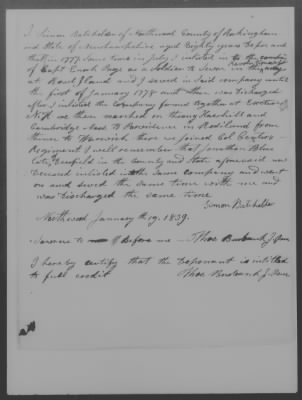 I Simon Batchelder of Northwood County of Rockingham
and State of Newhampshire aged Eighty years Depose and
that in 1777 Some time in July I inlisted in the
of Capt Enoch Page as a Soldier to Serve in the
at Road Island and I served in Said company untill
the first of January 1778 until then was Discharged
after I inlisted the Company formed together at
N.H we then marched on through Haverhill and
Cambridge Mass to Providence in Rodisland from
thence to Warwick there we joined Col Senters
Regiment I well remember that Jonathan Blue
late Deerfield in the county and State aforesaid now
Deceased inlisted in the Same company and went
on and served the same time with me and
was Discharged the same time
Simon Batchelder
Northwood January the 19, 1839.
Sworne to Before me Thos Burbank J. Peace
I hereby certify that the Deponant is intitled
to full credit Thos Burbank J. Peace